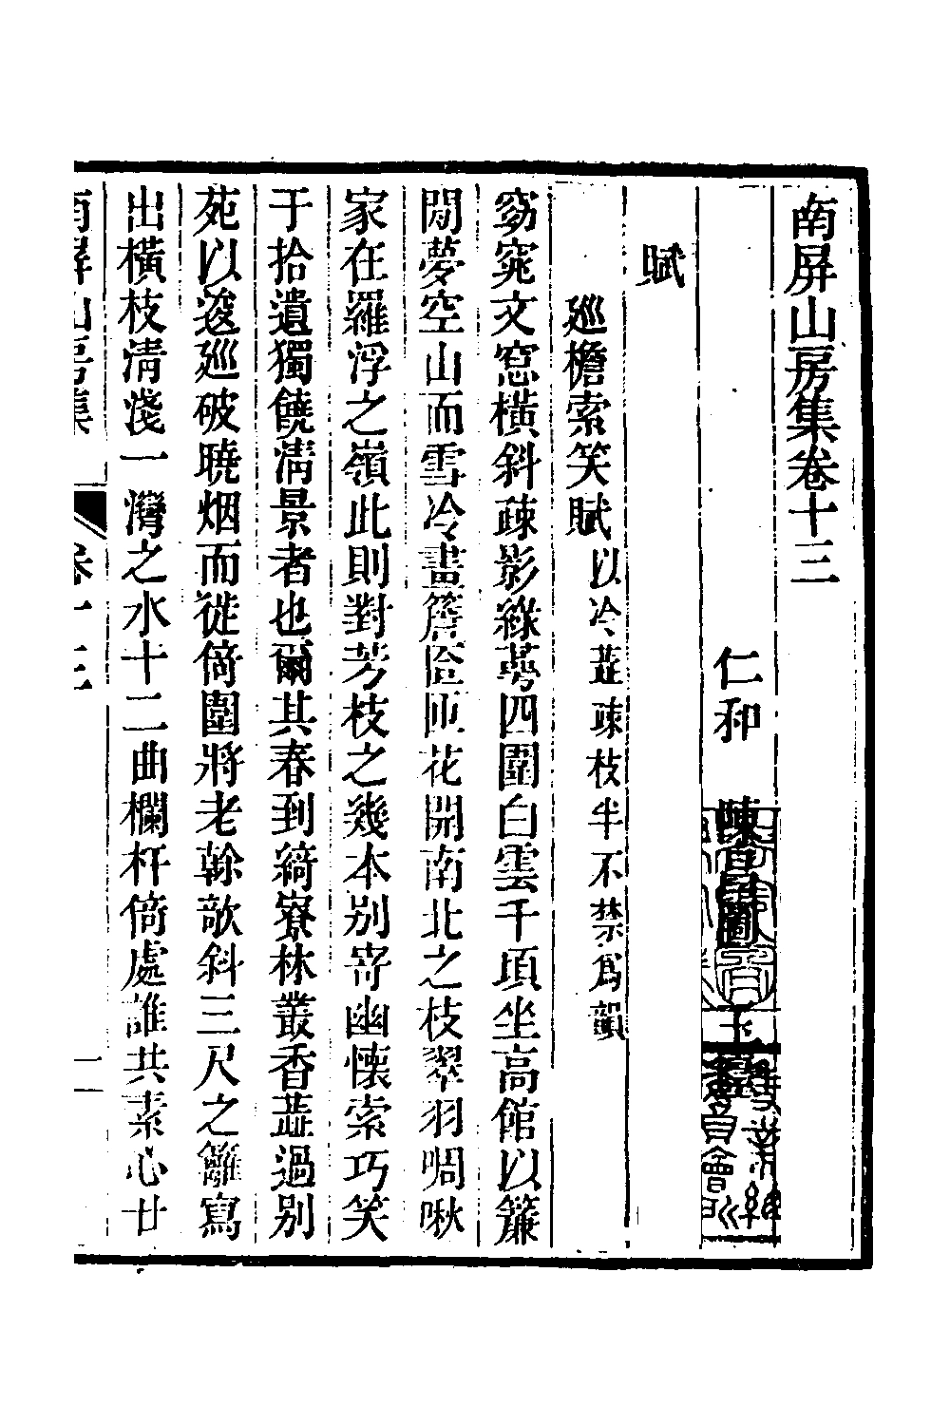 南屏山房集卷十三
仁和 陳昌圖 玉臺
賦
廵檐索笑賦 以冷蘂疎枝半不禁爲韻
窈窕文窓橫斜疎影綠萼四圍白雲千頃坐高館以簾
閒夢空山而雪冷畫簷匼匝花開南北之枝翠羽啁啾
家在羅浮之嶺此則對芳枝之幾本别寄幽懷索巧笑
于拾遺獨饒淸景者也爾其春到綺寮林叢香蘂過别
苑以逡廵破曉烟而徙倚圍將老榦欹斜三尺之籬寫
出橫枝淸淺一灣之水十二曲欄杆倚處誰共素心廿
南屏山房集 卷十三 一